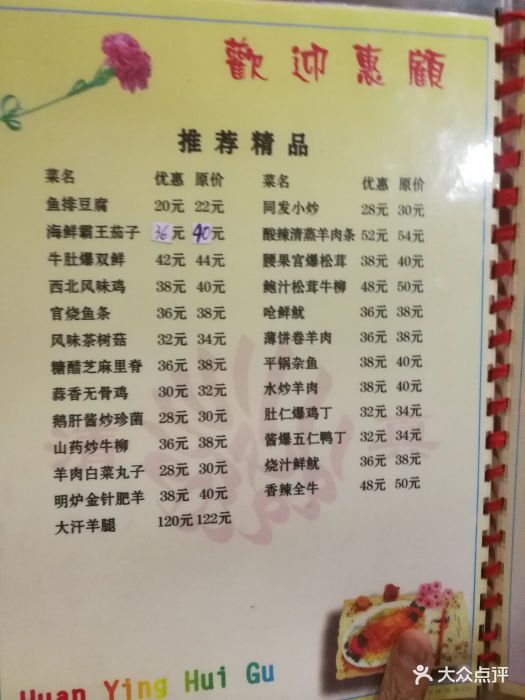 歡迎惠顧
推荐精品
菜名 优惠 原价
鱼排豆腐 20元 22元
海鲜霸王茄子 36元 40元
牛肚爆双鲜 42元 44元
西北风味鸡 38元 40元
官烧鱼条 36元 38元
风味茶树菇 32元 34元
糖醋芝麻里脊 36元 38元
蒜香无骨鸡 30元 32元
鹅肝酱炒珍菌 28元 30元
山药炒牛柳 36元 38元
羊肉白菜丸子 28元 30元
明炉金针肥羊 38元 40元
大汗羊腿 120元 122元
菜名 优惠 原价
同发小炒 28元 30元
酸辣清蒸羊肉条 52元 54元
腰果宫爆松茸 38元 40元
鲍汁松茸牛柳 48元 50元
呛鲜鱿 36元 38元
薄饼卷羊肉 36元 38元
平锅杂鱼 38元 40元
水炒羊肉 38元 40元
肚仁爆鸡丁 32元 34元
酱爆五仁鸭丁 32元 34元
烧汁鲜鱿 36元 38元
香辣全牛 48元 50元
Huan Ying Hui Gu
大众点评